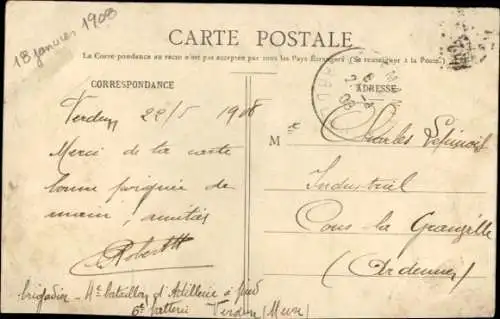 18 janvier 1908
CARTE POSTALE
La Correspondance au recto n'est pas acceptée par tous les Pays Étrangers (Se renseigner à la Poste)
CORRESPONDANCE
ADRESSE
Verdun 22/5 1908
Merci de la carte
bonne poignée de
main, amitiés
Robert
M Charles Lepinois
Industriel
Cons la Granville
(Ardennes)
brigadier 4e bataillon d'Artillerie à pied
6e batterie Verdun (Meuse)